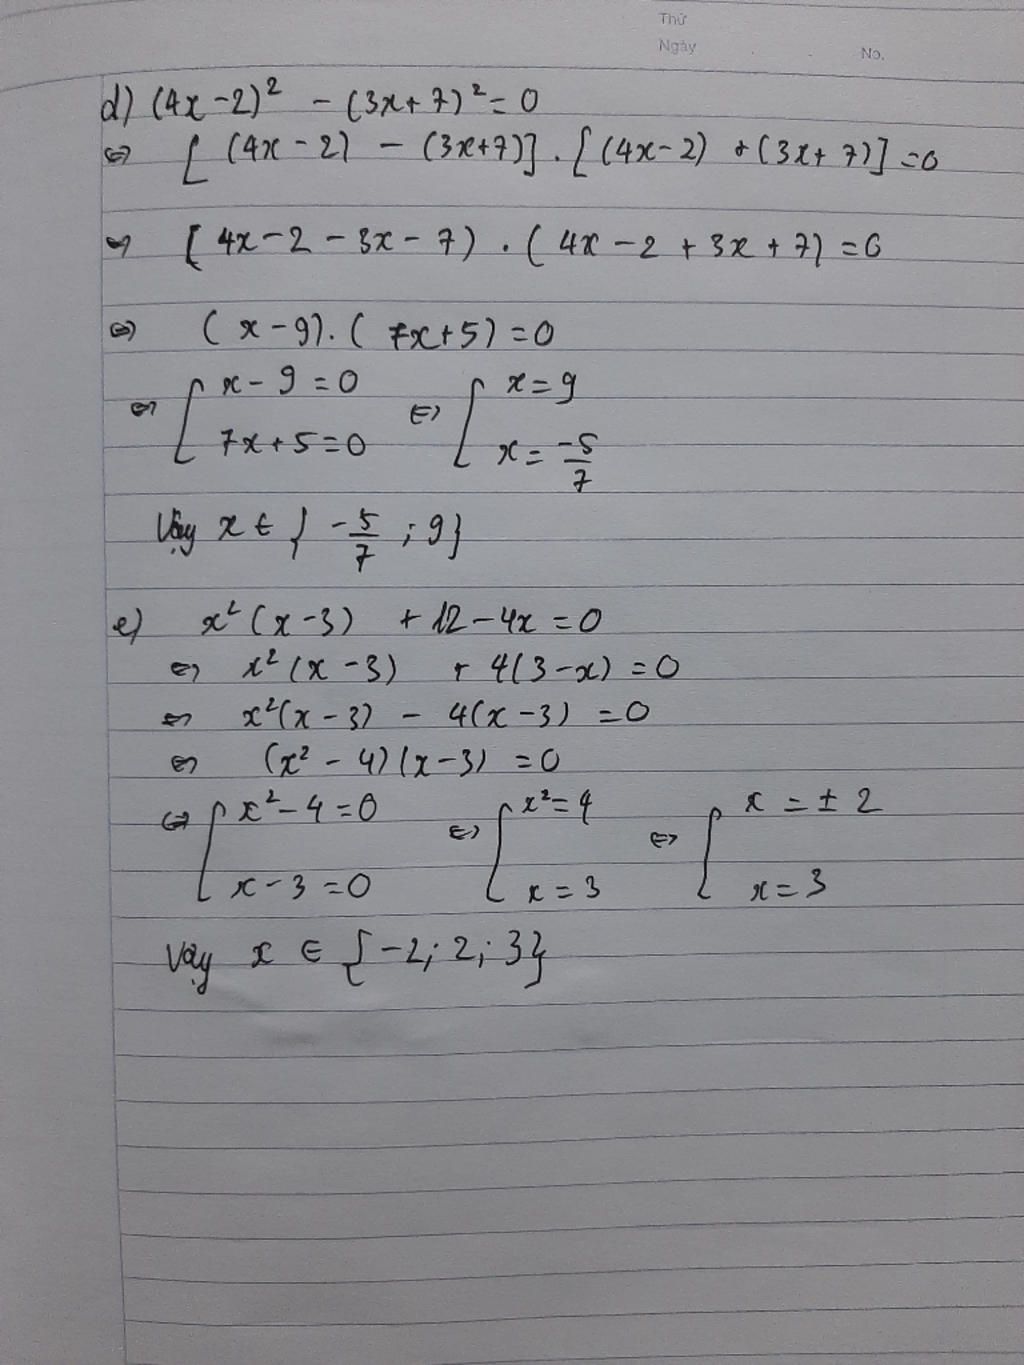 Thứ
Ngày . . No.
d) (4x-2)² - (3x+7)² = 0
⇔ [(4x-2) - (3x+7)] . [(4x-2) + (3x+7)] = 0
⇔ (4x-2-3x-7) . (4x-2+3x+7) = 0
⇔ (x-9).(7x+5) = 0
⇔ [ x-9=0 ⇔ [ x=9
7x+5=0 x=-5/7
Vậy x ∈ {-5/7 ; 9}
e) x²(x-3) + 12-4x = 0
⇔ x²(x-3) + 4(3-x) = 0
⇔ x²(x-3) - 4(x-3) = 0
⇔ (x²-4)(x-3) = 0
⇔ [ x²-4=0 ⇔ [ x²=4 ⇔ [ x=±2
x-3=0 x=3 x=3
Vậy x ∈ {-2; 2; 3}